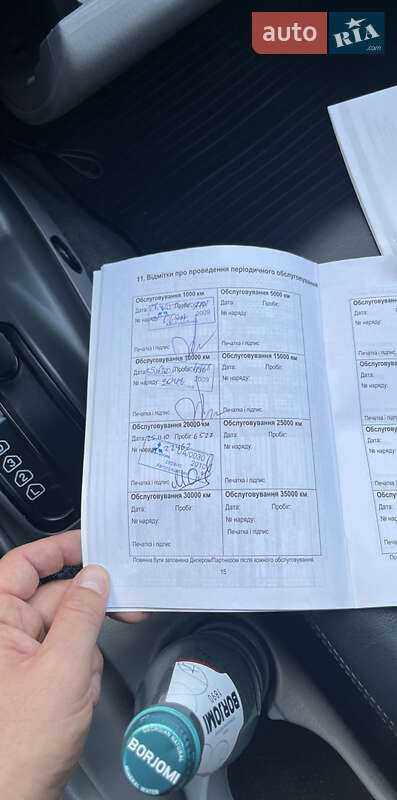 auto RIA .com
11. Відмітки про проведення періодичного обслуговування
Обслуговування 1000 км
Дата: Пробіг:
№ наряду: 2009
Печатка і підпис
Обслуговування 5000 км
Дата: Пробіг:
№ наряду:
Печатка і підпис
Обслуговування 10000 км
Дата: Пробіг:
№ наряду: 2009
Печатка і підпис
Обслуговування 15000 км
Дата: Пробіг:
№ наряду:
Печатка і підпис
Обслуговування 20000 км
Дата: 25.11.10 Пробіг: 6522
№ наряду:
2010
Печатка і підпис
Обслуговування 25000 км
Дата: Пробіг:
№ наряду:
Печатка і підпис
Обслуговування 30000 км
Дата: Пробіг:
№ наряду:
Печатка і підпис
Обслуговування 35000 км
Дата: Пробіг:
№ наряду:
Печатка і підпис
Повинна бути заповнена Дилером/Партнером після кожного обслуговування.
15
Дата:
№ наряду:
Печатка і підпис
Дата:
№ наряду:
Печатка і підпис
Дата:
№ наряду:
Печатка і підпис
Дата:
№ наряду:
Печатка і підпис
1
2
3
BORJOMI
1890
GEORGIAN NATURAL
BORJOMI
MINERAL WATER